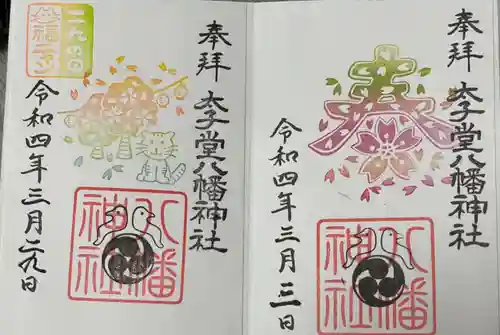 奉拝
太子堂八幡神社
八幡
神社
令和四年三月二九日
奉拝
太子堂八幡神社
春
八幡
神社
令和四年三月三日